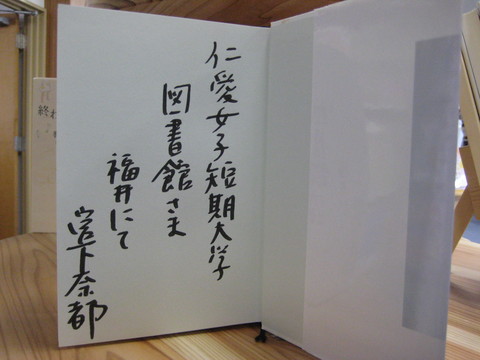 仁愛女子短期大学
図書館さま
福井にて
宮下奈都
終わ